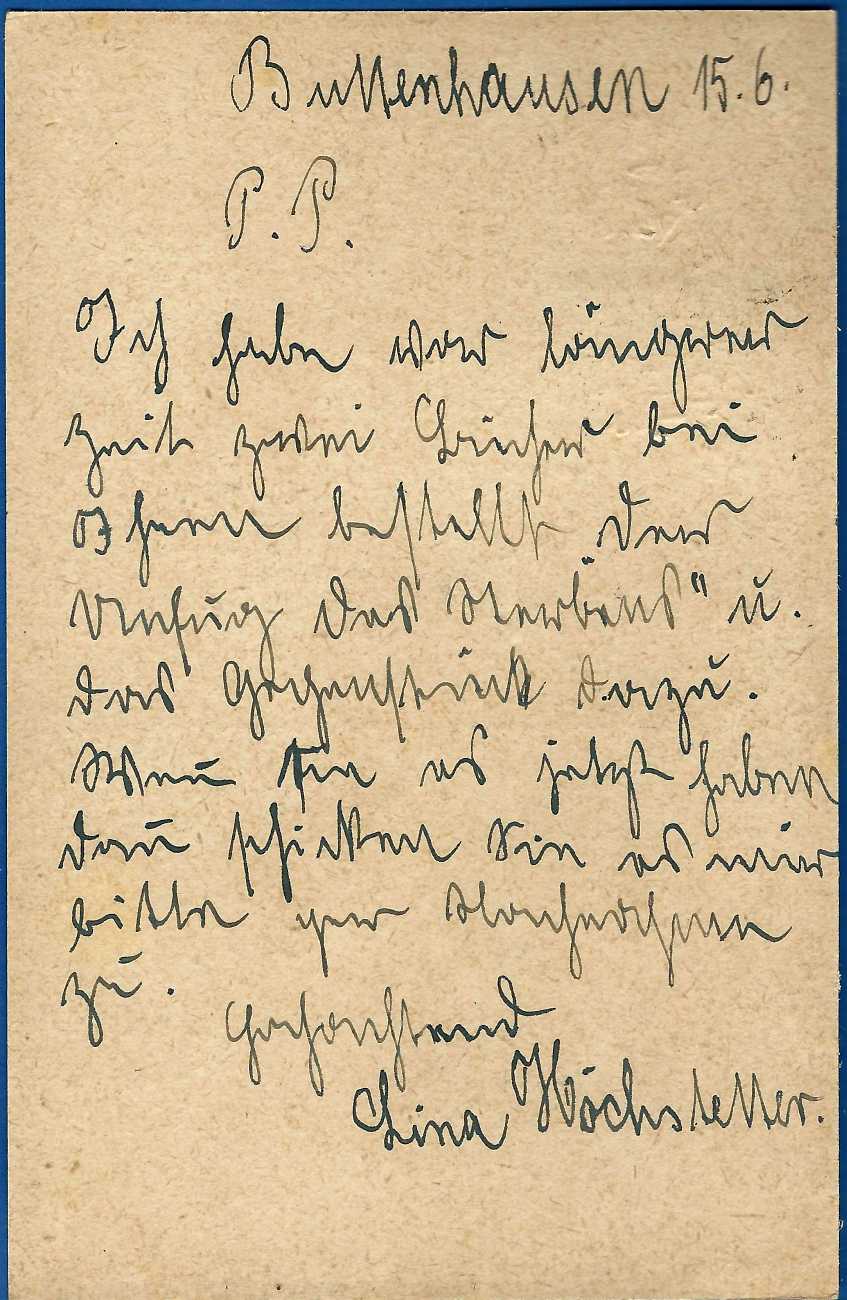 Buttenhausen 15.6.
P.P.
Ich habe vor längerer
Zeit zwei Bücher bei
Ihnen bestellt „Der
Unfug des Sterbens" u.
das Gegenstück dazu.
Weñ Sie es jetzt haben
dañ schicken Sie es mir
bitte per Nachnahme
zu.
Hochachtend
Lina Höchstetter.